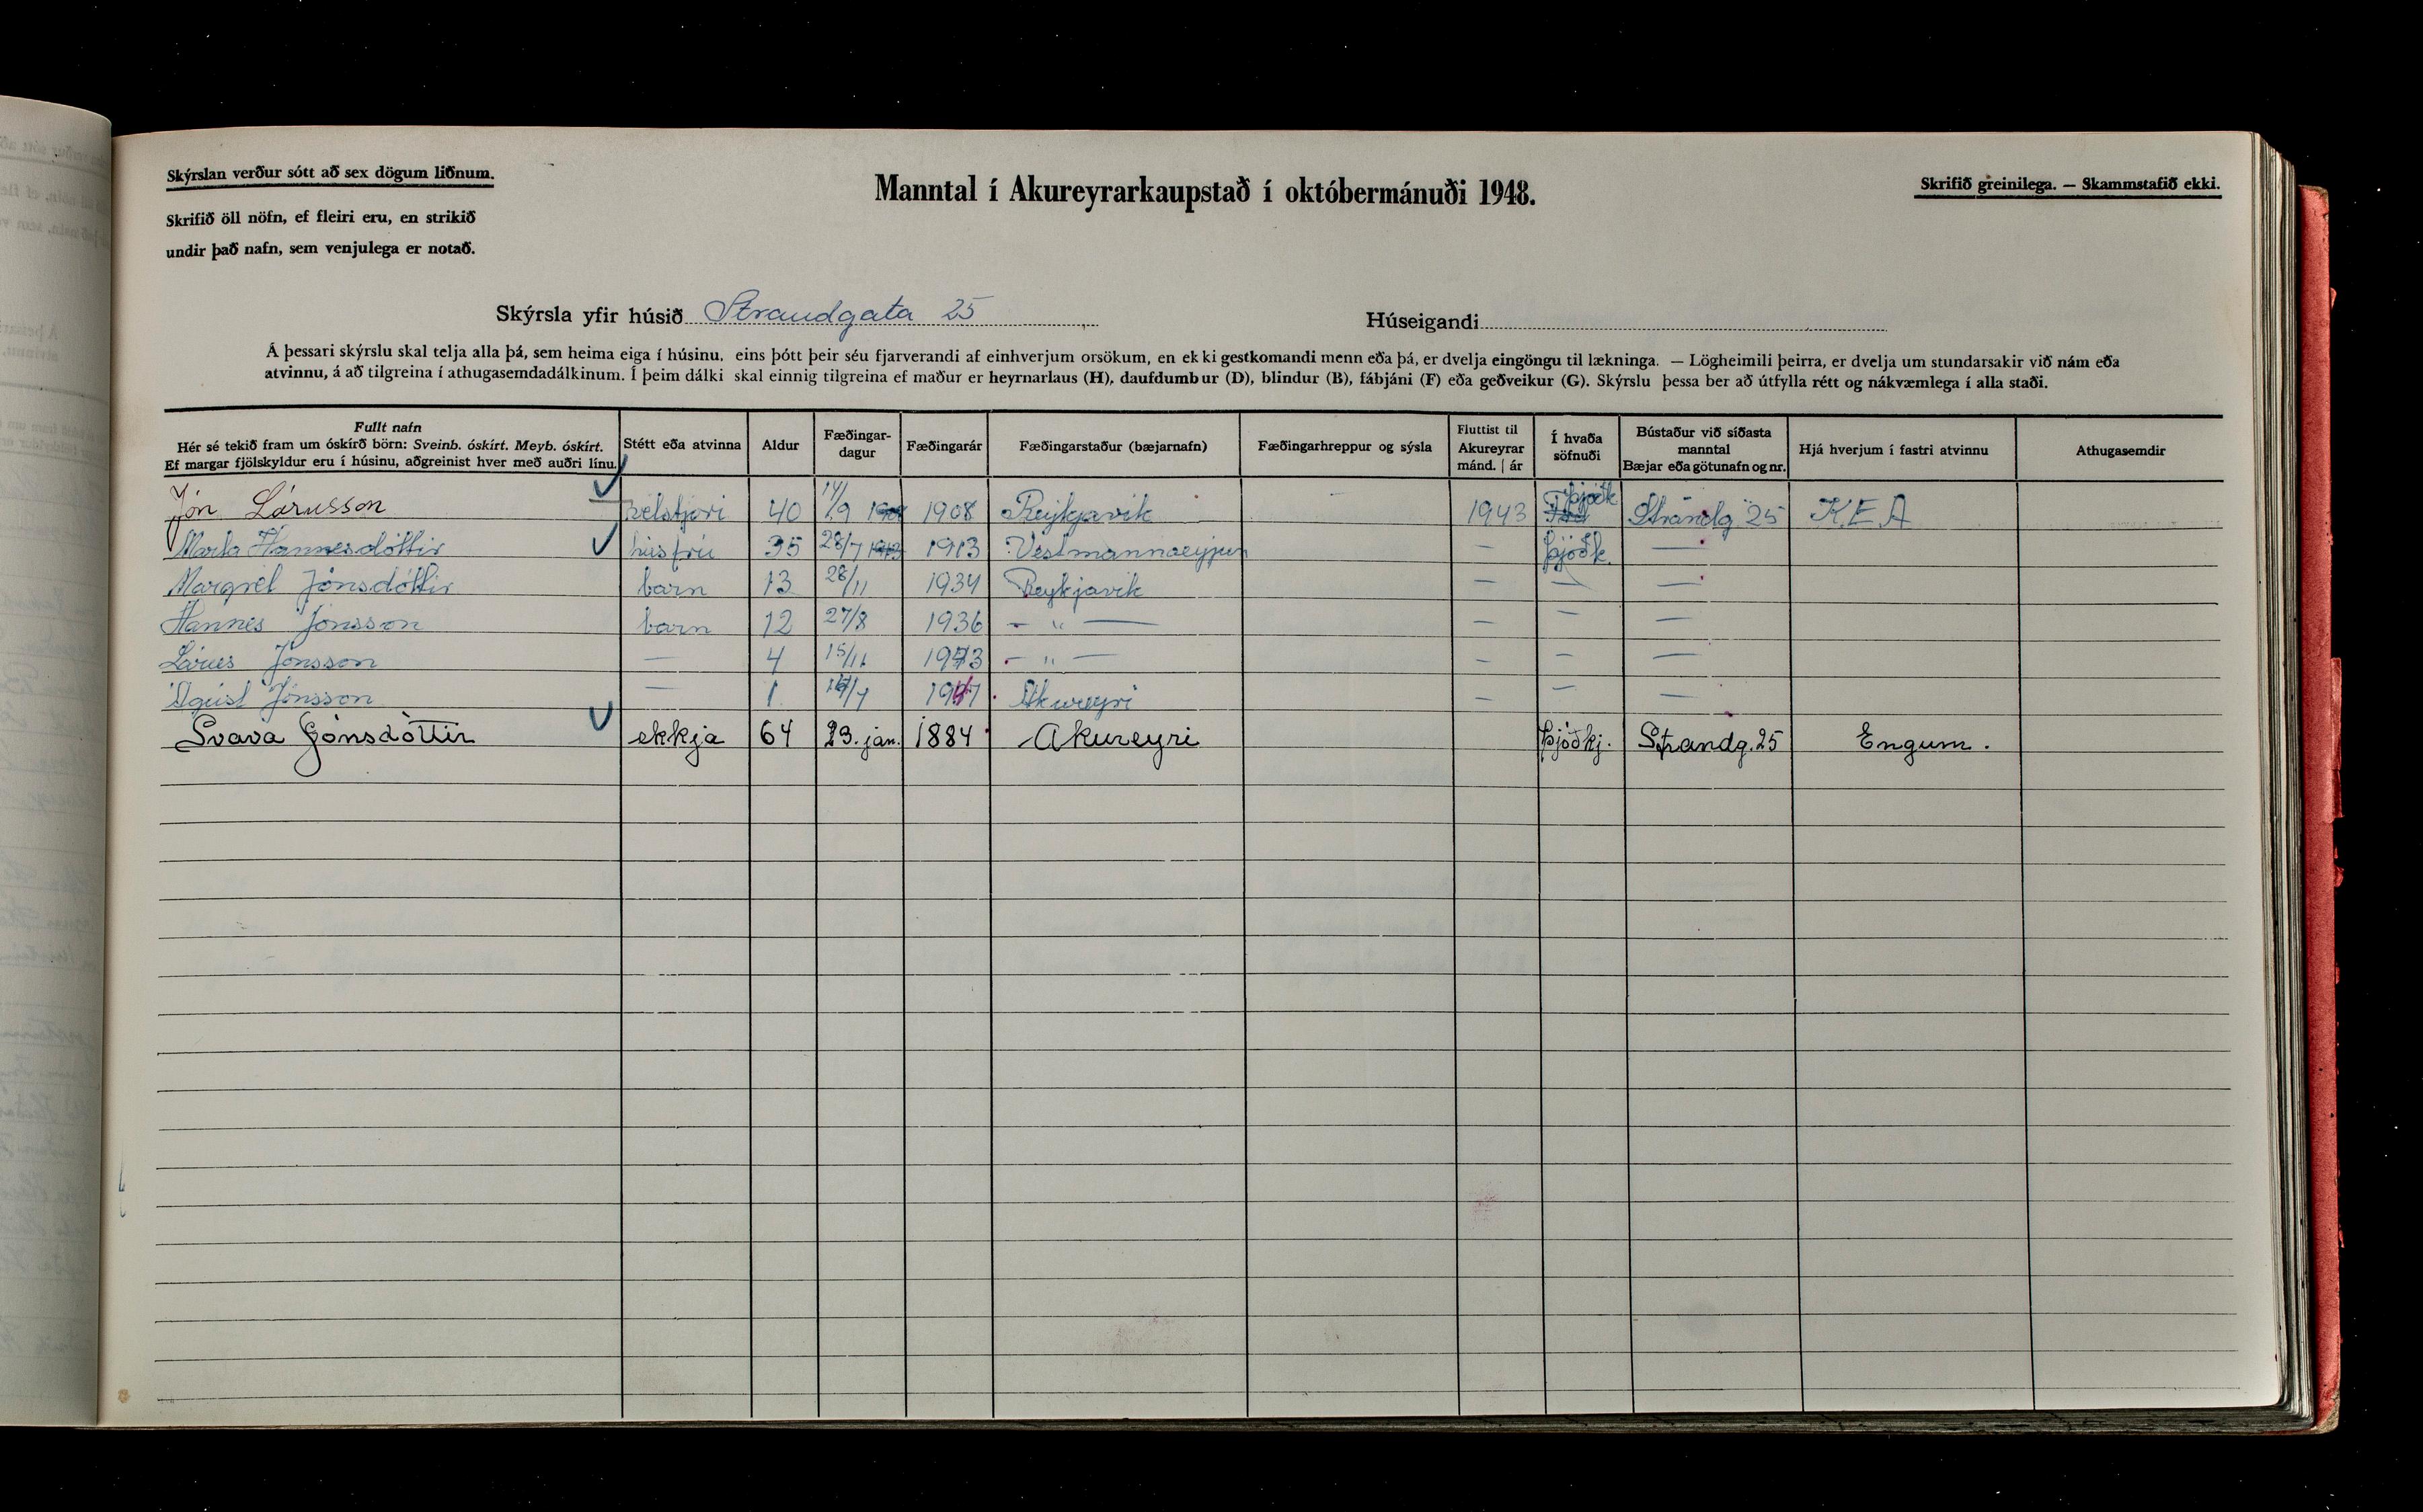 Skýrslan verður sótt að sex dögum liðnum.
Skrifið öll nöfn, ef fleiri eru, en strikið
undir það nafn, sem venjulega er notað.
Manntal í Akureyrarkaupstað í októbermánuði 1948.
Skrifið greinilega. — Skammstafið ekki.
Skýrsla yfir húsið Strandgata 25
Húseigandi
Á þessari skýrslu skal telja alla þá, sem heima eiga í húsinu, eins þótt þeir séu fjarverandi af einhverjum orsökum, en ekki gestkomandi menn eða þá, er dvelja eingöngu til lækninga. — Lögheimili þeirra, er dvelja um stundarsakir við nám eða
atvinnu, á að tilgreina í athugasemdadálkinum. Í þeim dálki skal einnig tilgreina ef maður er heyrnarlaus (H), daufdumbur (D), blindur (B), fábjáni (F) eða geðveikur (G). Skýrslu þessa ber að útfylla rétt og nákvæmlega í alla staði.
Fullt nafn
Hér sé tekið fram um óskírð börn: Sveinb. óskírt. Meyb. óskírt.
Ef margar fjölskyldur eru í húsinu, aðgreinist hver með auðri línu.
Stétt eða atvinna
Aldur
Fæðingar-
dagur
Fæðingarár
Fæðingarstaður (bæjarnafn)
Fæðingarhreppur og sýsla
Fluttist til
Akureyrar
mánd. | ár
Í hvaða
söfnuði
Bústaður við síðasta
manntal
Bæjar eða götunafn og nr.
Hjá hverjum í fastri atvinnu
Athugasemdir
Jón Lárusson 40 14/9 1908 Reykjavík — 1943 Þjóðk Strandg 25 K.E.A
Marta Hannesdóttir húsfrú 35 28/7 1913 1913 Vestmannaeyjum — Þjóðk. —
Margrét Jónsdóttir barn 13 28/11 1934 Reykjavík — — —
Hannes Jónsson barn 12 27/8 1936 — " — — — —
Lárus Jónsson — 4 15/11 1943 — " — — — —
Ágúst Jónsson — 1 1947 Akureyri — — —
Svava Jónsdóttir ekkja 64 23. jan. 1884 Akureyri Þjóðkj. Strandg. 25 Engum.